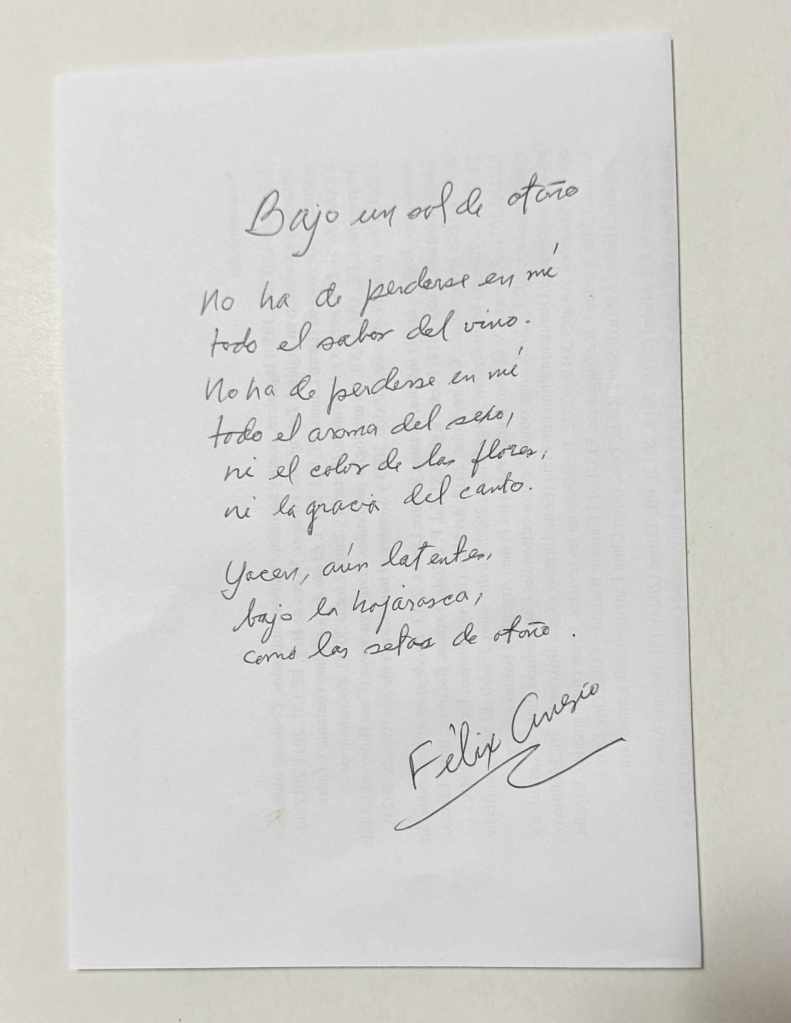 Bajo un sol de otoño
No ha de perderse en mí
todo el sabor del vino.
No ha de perderse en mí
todo el aroma del sexo,
ni el color de las flores,
ni la gracia del canto.
Yacen, aún latentes,
bajo la hojarasca,
como las setas de otoño.
Félix Anesio